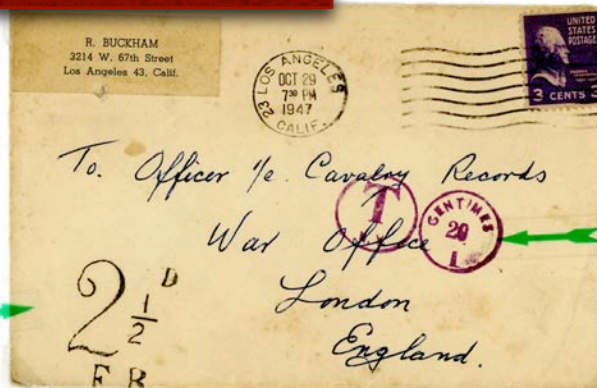 R. BUCKHAM
3214 W. 67th Street
Los Angeles 43, Calif.
23 LOS ANGELES
OCT 29
7 30 PM
1947
CALIF.
UNITED
STATES
POSTAGE
3 CENTS 3
To. Officer i/c. Cavalry Records
T
CENTIMES
20
1
War Office
London
England.
2 1/2 D
F B